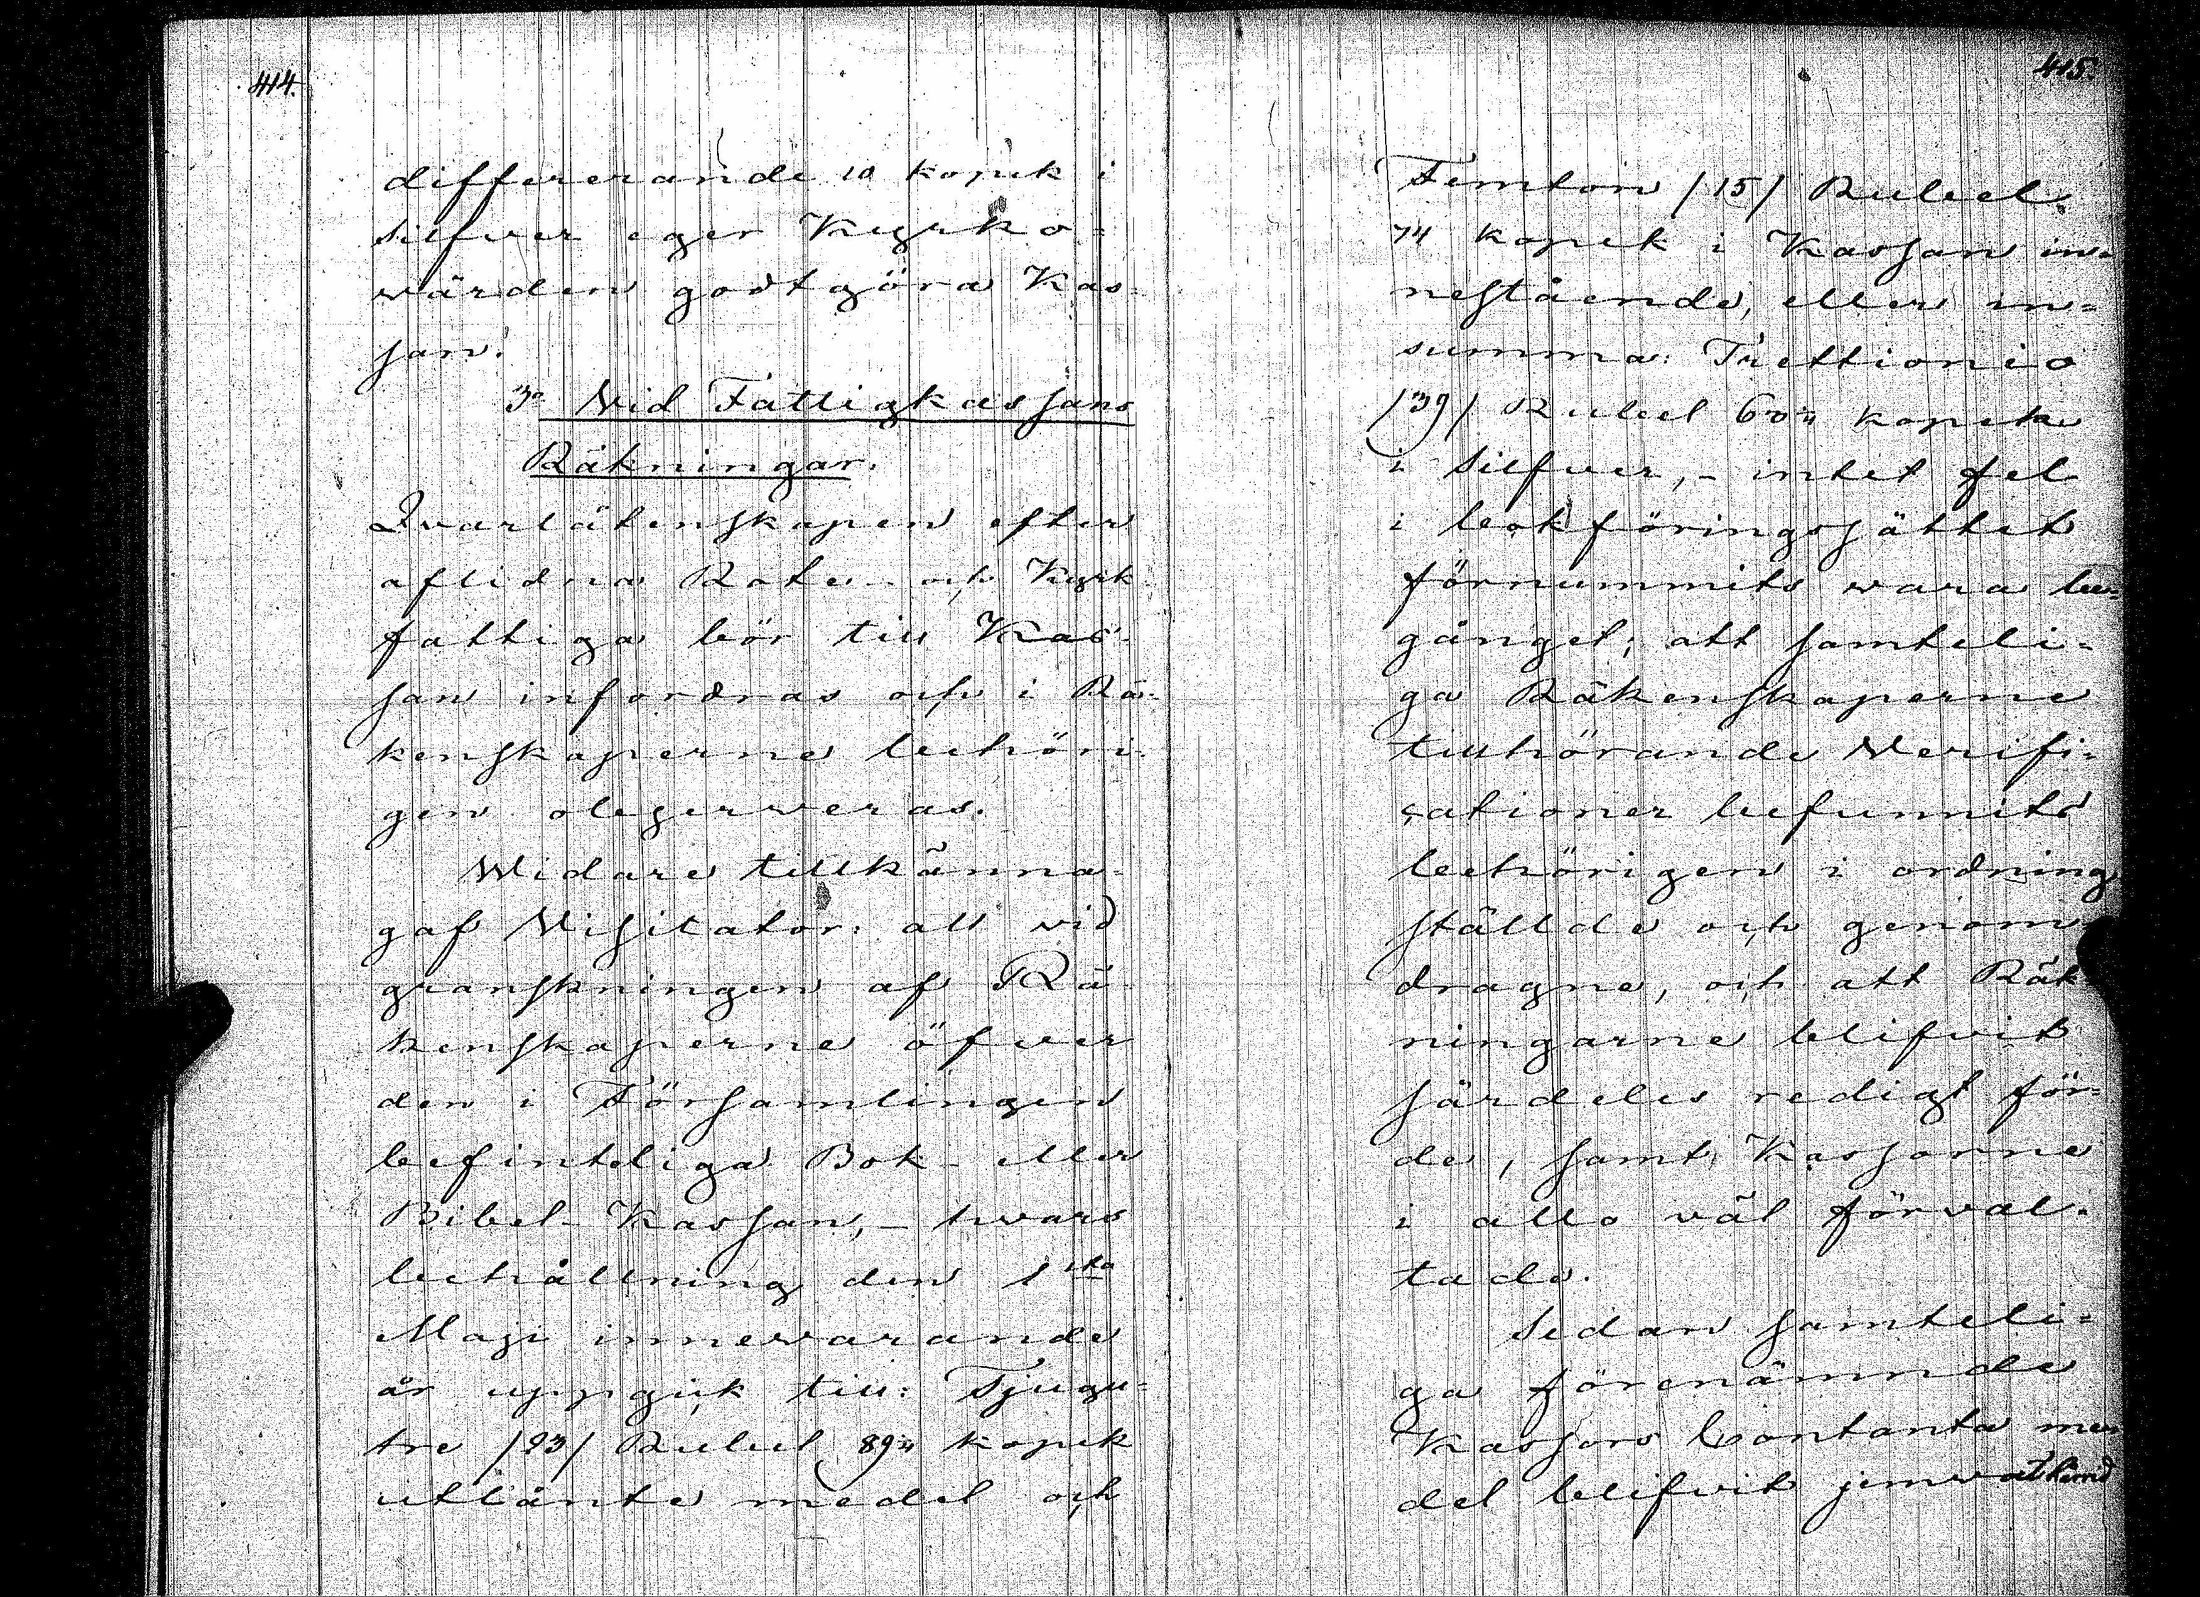 414.
differerande 10 kopek i
silfver eger Kyrko=
wärden godtgöra Kas-
san.
3o Vid Fattigkassans
Räkningar.
Qvarlåtenskapen efter
aflidna Rote- och Kyrk-
fattiga bör till Kas-
san infordras och i Rä-
kenskaperne behöri-
gen observeras.
Widare tillkänna-
gaf Visitator: att vid
granskningen af Rä-
kenskaperne öfver
den i Församlingen
befinteliga Bok- eller
Bibel-Kassan, - hvars
behållning den 1sta
Maji innevarande
år uppgick till: Tjugu-
tre /23/ Rubel 89 kopek
utlånte medel och
415.
Femton /15/ Rubel
74 kopek i Kassan in-
nestående, eller in=
summa: Trettionio
/39/ Rubel kopek
i silfver, - intet fel
i bokföringssättet
förnummits vara be-
gånget; att samteli=
ga Räkenskaperne
tillhörande Verifi=
cationer befunnits
behörigen i ordning
ställde och genom
dragne, och att Räk-
ningarne blifvit
särdeles redigt för=
de, samt Kassorne
i allo väl förval-
tade.
Sedan samteli=
ga förenämnde
Kassors Contanta me-
del blifvit jemväl